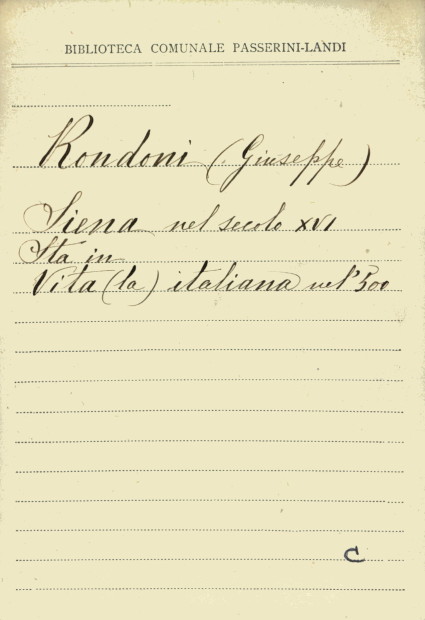 BIBLIOTECA COMUNALE PASSERINI-LANDI
Rondoni (Giuseppe)
Siena nel secolo XVI
Sta in
Vita (la) italiana nel '500
C